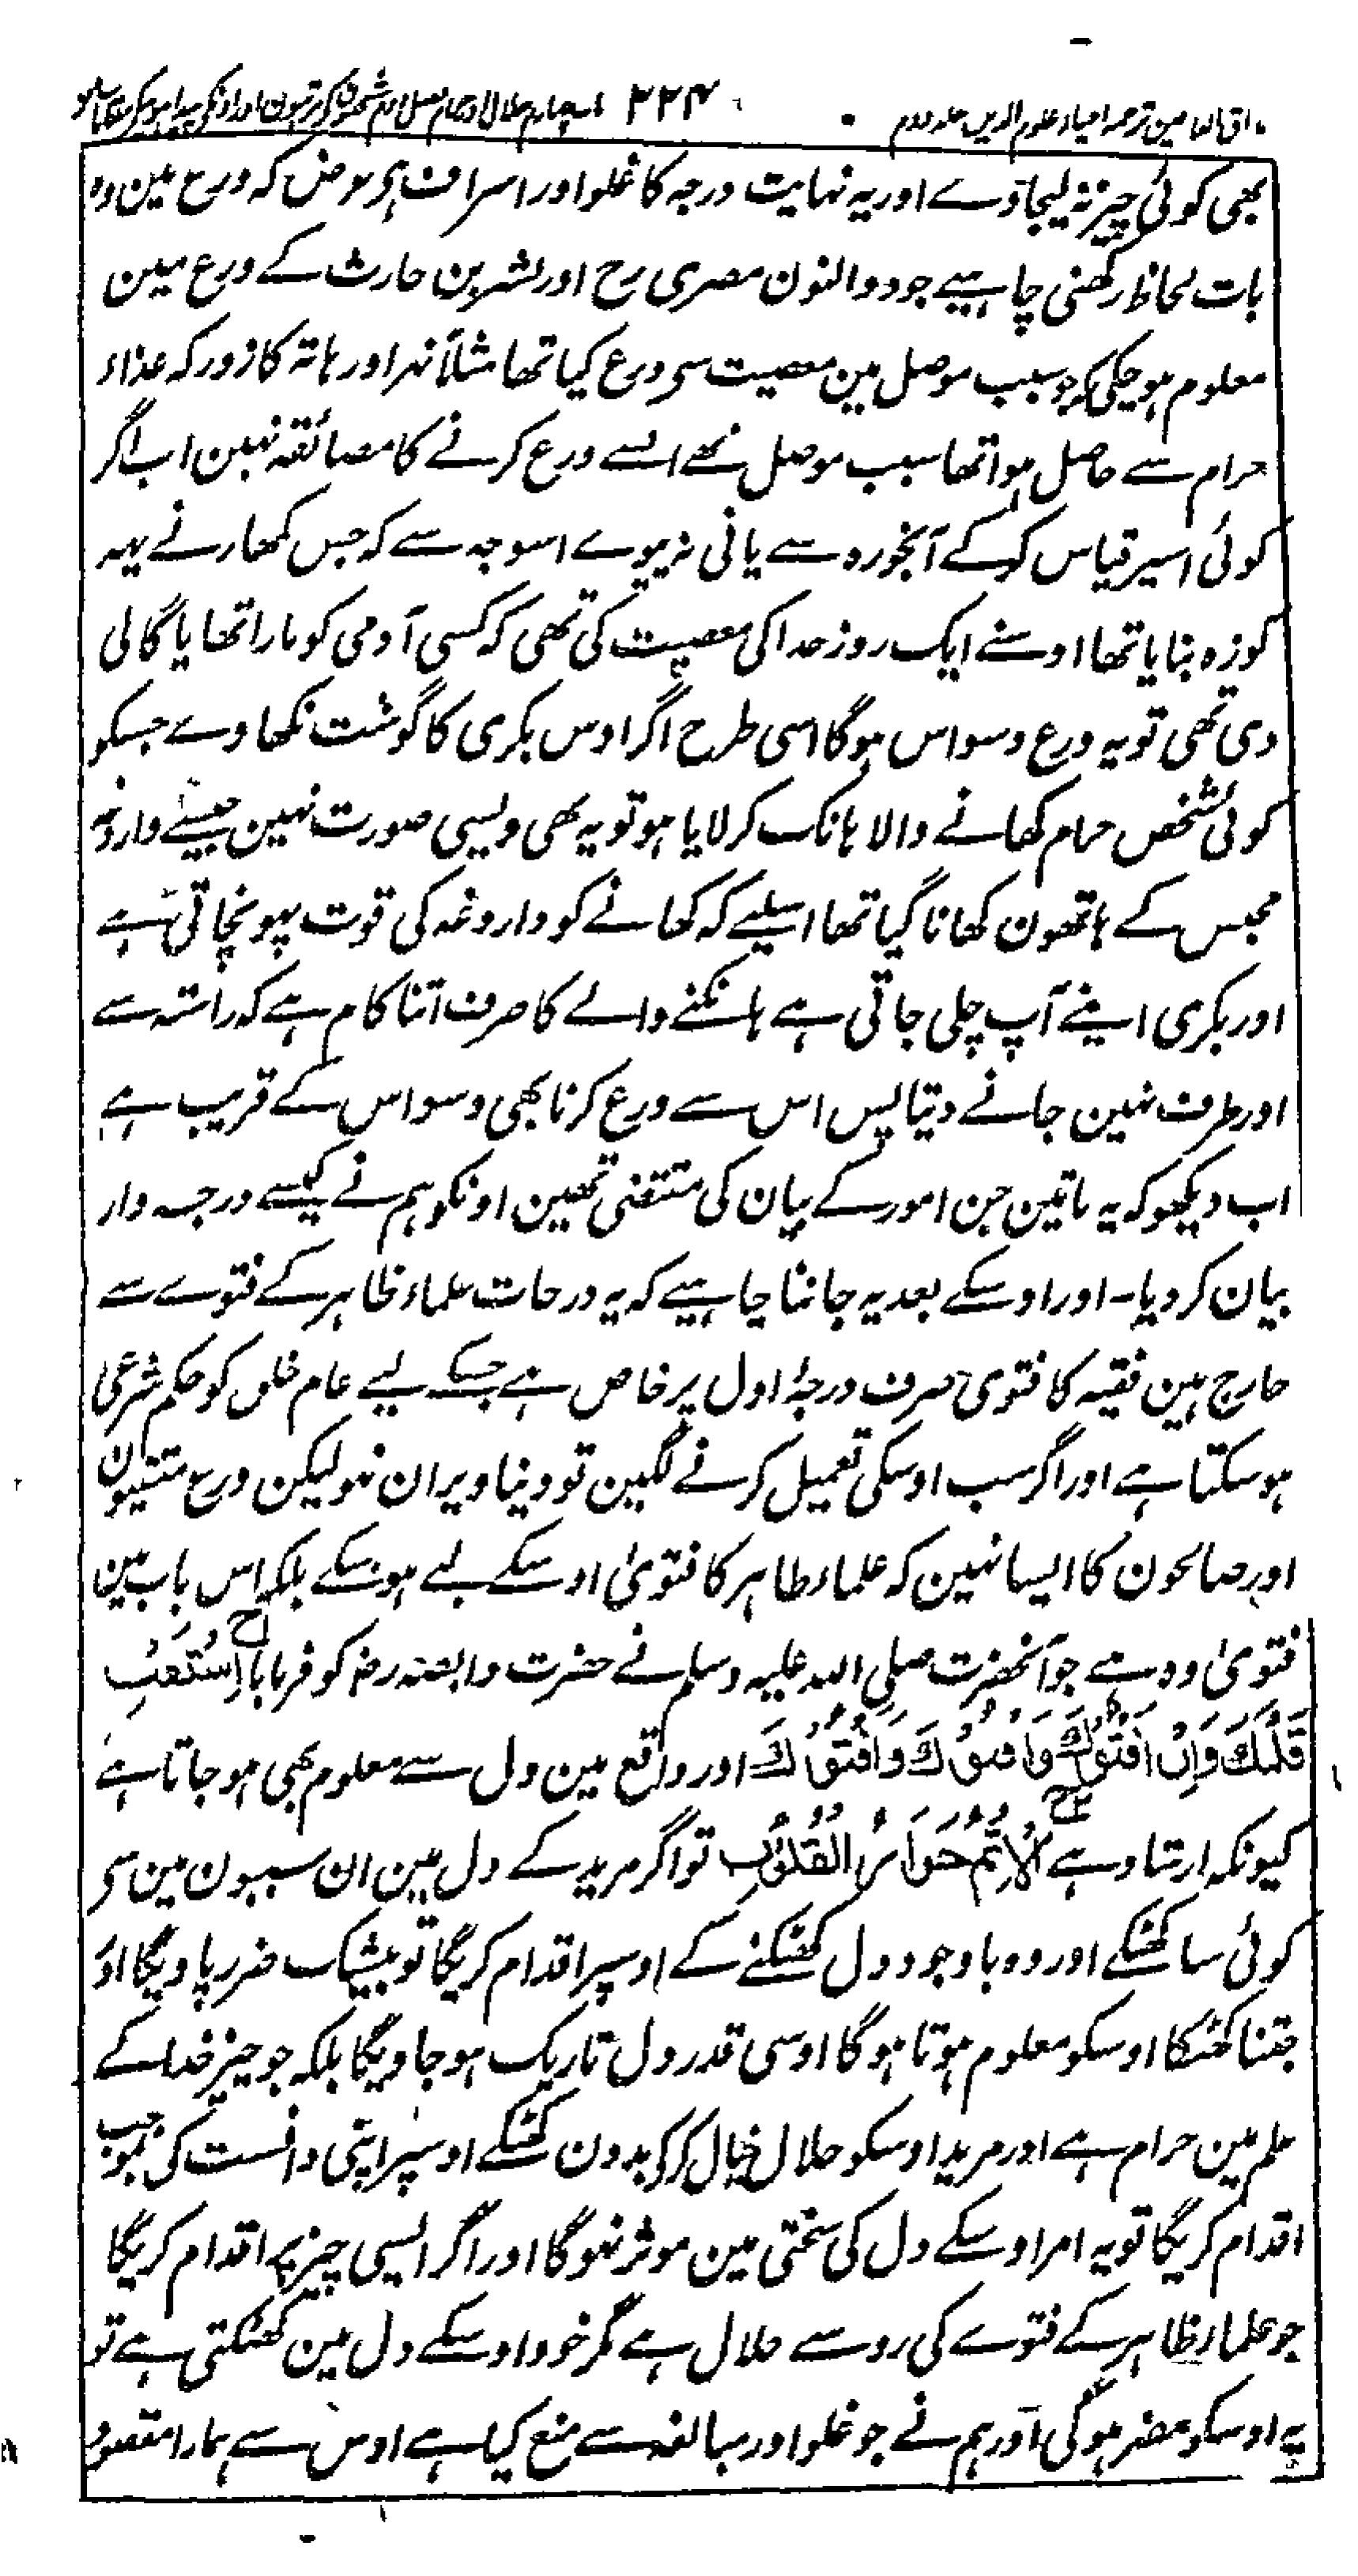 مذاق العارفین ترجمہ احیاء علوم الدین جلد دوم ۲۲۴
بھی کوئی چیز نہ لیجاوے اور یہ نہایت درجہ کا غلو اور اسراف ہی غرض کہ ورع مین وہ
بات لحاظ رکھنی چاہیے جو ذوالنون مصری رح اور بشر بن حارث کے ورع مین
معلوم ہو چکی کہ جو سبب موصل مین معصیت سی ورع کیا تھا مثلاً نہر اور ہاتہ کا زور کہ غذاء
حرام سے حاصل ہوا تھا سبب موصل تھے اسے ورع کرنے کا مضائقہ نہین اب اگر
کوئی اسپر قیاس کرکے آبخورہ سے پانی نہ پیوے اسوجہ سے کہ جس کمھار نے یہہ
کوزہ بنایا تھا اوسنے ایک روز خدا کی معصیت کی تھی کہ کسی آدمی کو مارا تھا یا گالی
دی تھی تو یہ ورع وسواس ہوگا اسی طرح اگر اوس بکری کا گوشت نکھاوے جسکو
کوئی شخص حرام کھانے والا ہانک کر لایا ہو تو یہ بھی ویسی صورت نہین جیسے داروغہ
مجس کے ہاتھون کھانا گیا تھا اسلیے کہ کھانے کو داروغہ کی قوت پہونچاتی ہے
اور بکری اپنے آپ چلی جاتی ہے ہانکنے والے کا صرف اتنا کام ہے کہ راستہ سے
اور طرف نہین جانے دیتا پس اس سے ورع کرنا بھی وسواس کے قریب ہے
اب دیکھو کہ یہ باتین جن امور کے بیان کی مقتضی تھین اونکو ہم نے کیسے درجہ وار
بیان کر دیا۔ اور اوسکے بعد یہ جاننا چاہیے کہ یہ درجات علماء ظاہر کے فتوے سے
خارج ہین فقیہ کا فتوی صرف درجۂ اول پر خاص ہے جسکے لیے عام خلق کو حکم شرعی
ہو سکتا ہے اور اگر سب اوسکی تعمیل کرنے لگین تو دنیا ویران نہو لیکن ورع متقیون
اور صالحون کا ایسا نہین کہ علماء ظاہر کا فتوی اوسکے لیے ہو سکے بلکہ اس باب مین
فتویٰ وہ ہے جو آنحضرت صلی اللہ علیہ وسلم نے حضرت وابصہ رض کو فرمایا اِسْتَفْتِ
قَلْبَكَ وَاِنْ اَفْتَوْكَ وَاَفْتَوْكَ وَاَفْتَوْكَ اور واقع مین دل سے معلوم بھی ہو جاتا ہے
کیونکہ ارشاد ہے اَلْاِثْمُ حَوَازُ الْقُلُوْبِ تو اگر مرید کے دل مین ان سببون مین سی
کوئی سا کھٹکے اور وہ باوجود دل کھٹکنے کے اوسپر اقدام کریگا تو بیشک ضرر پاویگا او
جتنا کھٹکا اوسکو معلوم ہوتا ہوگا اوسی قدر دل تاریک ہو جاویگا بلکہ جو چیز خدا کے
علم مین حرام ہے اور مرید اوسکو حلال خیال کر کی بدون کھٹکے اوسپر اپنی دانست کی بموجب
اقدام کریگا تو یہ امر اوسکے دل کی سختی مین موثر نہوگا اور اگر ایسی چیز پر اقدام کریگا
جو علماء ظاہر کے فتوے کی رو سے حلال ہے مگر خود اوسکے دل مین کھٹکتی ہے تو
یہ اوسکو مضر ہوگی اور ہم نے جو غلو اور مبالغہ سے منع کیا ہے اوس سے ہمارا مقصود